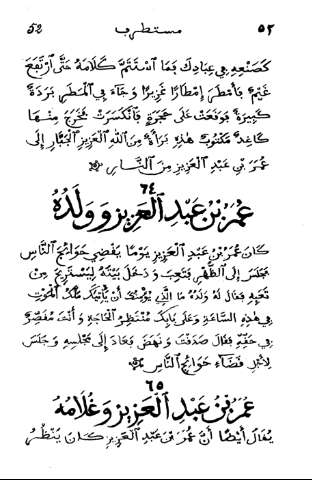 ٥٢ مستطرب 52
كصنعه في عبادك بما استتم كلامه حتى ارتفع
غيم فامطر امطارا غزيرا وجاء في المطر بردة
كبيرة فوقعت على حجرة فانكسرت فخرج منها
كاغد مكتوب هذه براة من الله العزيز الجبار إلى
عمر بن عبد العزيز من النار
٦٤
عمر بن عبد العزيز وولده
كان عمر بن عبد العزيز يوما يقضي حوائج الناس
فجلس إلى الظهر فتعب ودخل بيته ليستريح من
تعبه فقال له ولده ما الذي يؤمنك أن يأتيك ملك الموت
في هذه الساعة وعلى بابك منتظر الحاجة وأنت مقصر
في حقه فقال صدقت ونهض وعاد إلى مجلسه وجلس
لأجل قضاء حوائج الناس
٦٥
عمر بن عبد العزيز وغلامه
يقال أيضا أن عمر بن عبد العزيز كان ينظر